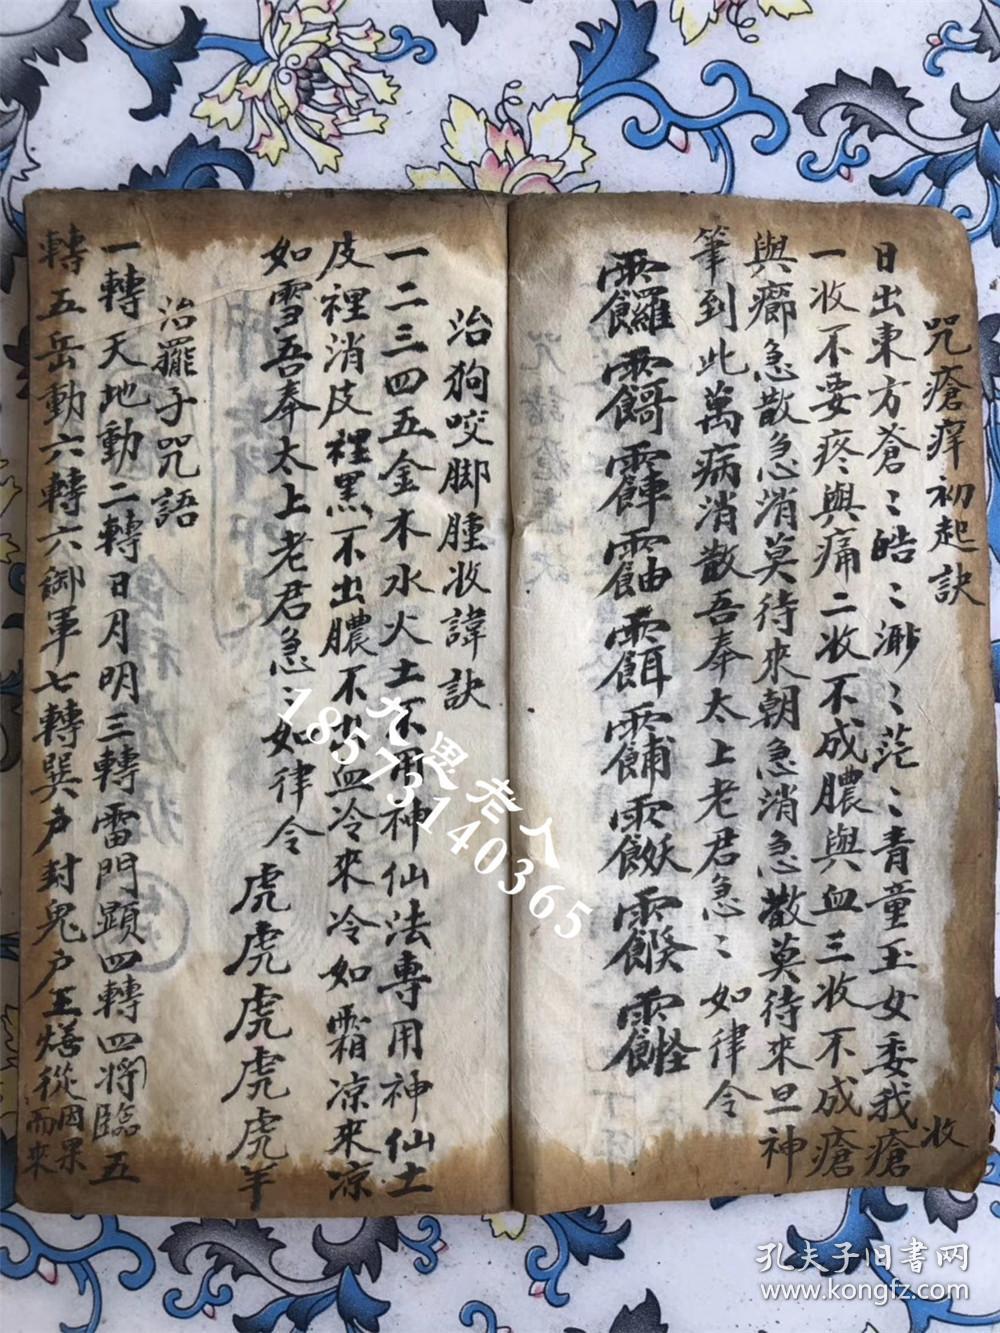 咒瘡痒初起訣
日出東方蒼〻皓〻渺〻茫〻青童玉女委我 收
一收不要疼與痛二收不成膿與血三收不成瘡 瘡
與癤急散急消莫待來朝急消急散莫待來旦神
筆到此萬病消散吾奉太上老君急〻如律令
治狗咬脚腫收諱訣
一二三四五金木水火土不用神仙法專用神仙土
皮裡消皮裡黑不出膿不出血冷來冷如霜凉來凉
如雪吾奉太上老君急〻如律令 虎虎虎虎虎羊
治罷子咒語
一轉天地動二轉日月明三轉雷門顕四轉四將臨五
轉五岳動六轉六御軍七轉巽户封鬼户 從因果而來
九思老人
18573140365
孔夫子旧書网
www.kongfz.com